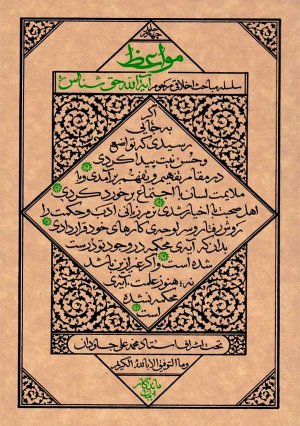 مواعظ
سلسله مباحث اخلاقی مرحوم آیة الله حق شناس
اگر
به جایی
رسیدی که تواضع
و حسن نیت پیدا کردی
در مقام تفهیم و تفهم برآمدی و با
ملایمت لسان با اجتماع برخورد کردی
اهل صحبت با اخیار شدی، نرم زبانی، ادب و حکمت را
روش رفتار و سرلوحه‌ی کارهای خود قرار دادی
بدان که آیه‌ی محکمه در وجود تو درست
شده است و اگر غیر از این باشد
نه؛ هنوز علمت، آیه‌ی
محکمه نشده
است
تحت اشراف استاد محمد علی جاودان
و ما التوفیق الا بالله الکریم